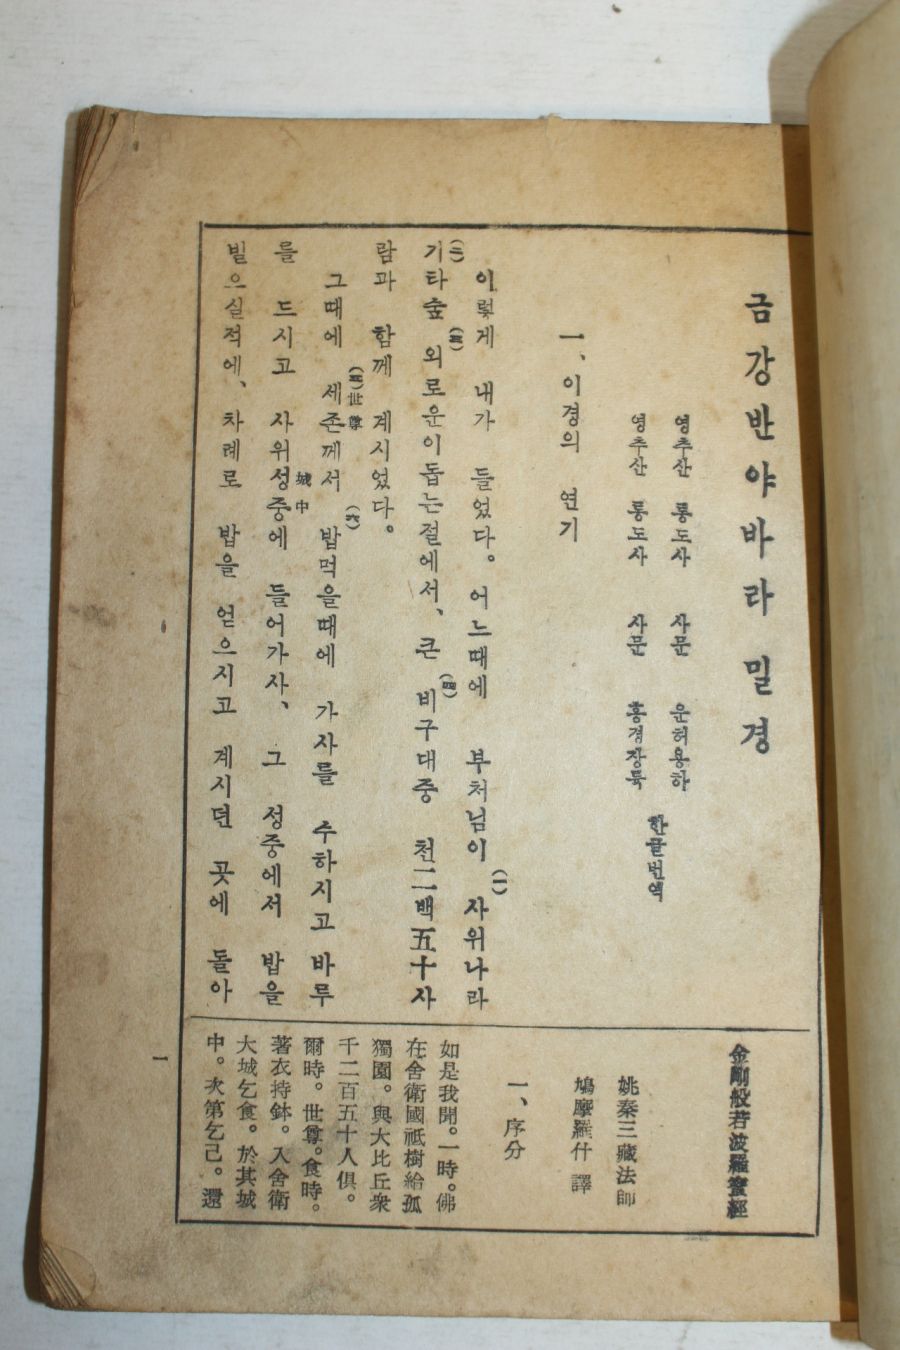 금강반야바라밀경
영추산 통도사 사문 운허용하
영추산 통도사 사문 홍경장육
한글번역
一、이경의 연기
이렇게 내가 들었다。어느때에 부처님이 (一)사위나라
(二)기타숲 (三)외로운이돕는절에서、큰 (四)비구대중 천二백五十사
람과 함께 계시었다。
그때에 (五)세존께서世尊 (六)밥먹을때에 가사를 수하시고 바루
를 드시고 사위성중에城中 들어가사、그 성중에서 밥을
빌으실적에、차례로 밥을 얻으시고 계시던 곳에 돌아
金剛般若波羅蜜經
姚秦三藏法師
鳩摩羅什 譯
一、序分
如是我聞。一時。佛
在舍衛國祇樹給孤
獨園。與大比丘衆
千二百五十人俱。
爾時。世尊。食時。
著衣持鉢。入舍衛
大城乞食。於其城
中。次第乞己。還
一